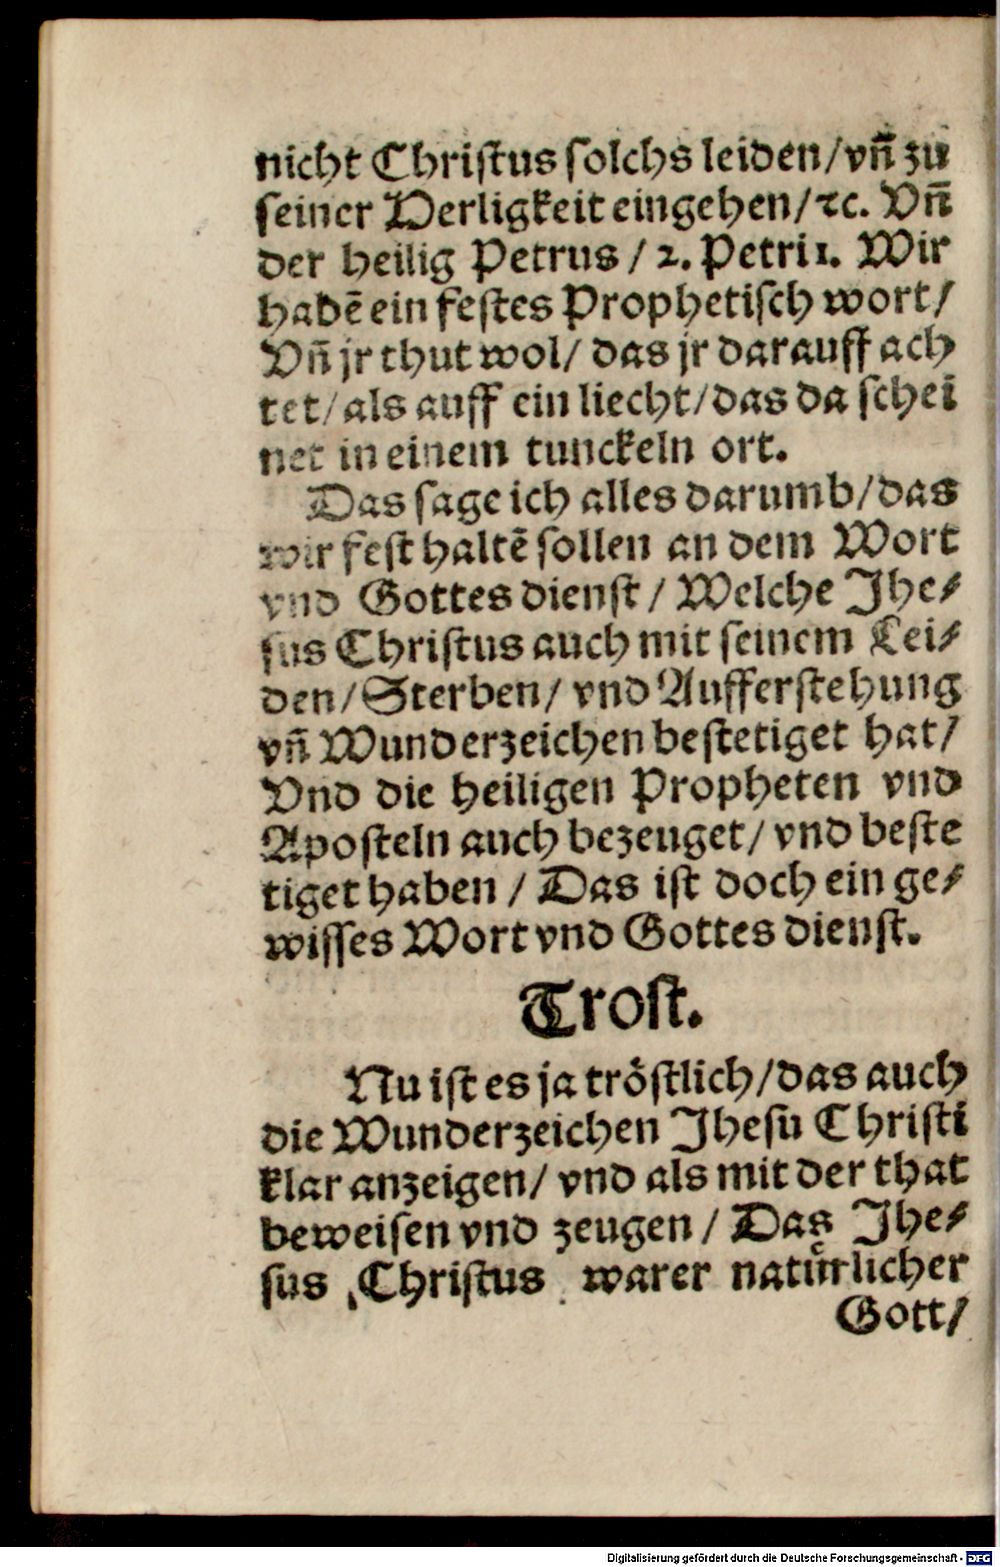 nicht Christus solchs leiden/vñ zu
seiner Herligkeit eingehen/ꝛc. Vñ
der heilig Petrus / 2. Petri 1. Wir
habē ein festes Prophetisch wort/
Vñ jr thut wol/ das jr darauff ach
tet/als auff ein liecht/das da schei
net in einem tunckeln ort.
Das sage ich alles darumb/das
wir fest haltē sollen an dem Wort
vnd Gottes dienst / Welche Jhe⸗
sus Christus auch mit seinem Lei⸗
den/Sterben/ vnd Aufferstehung
vñ Wunderzeichen bestetiget hat/
Vnd die heiligen Propheten vnd
Aposteln auch bezeuget/ vnd beste
tiget haben / Das ist doch ein ge⸗
wisses Wort vnd Gottes dienst.
Trost.
Nu ist es ja tröstlich/das auch
die Wunderzeichen Jhesu Christi
klar anzeigen/ vnd als mit der that
beweisen vnd zeugen / Das Jhe⸗
sus Christus warer natürlicher
Gott/
Digitalisierung gefördert durch die Deutsche Forschungsgemeinschaft - DFG